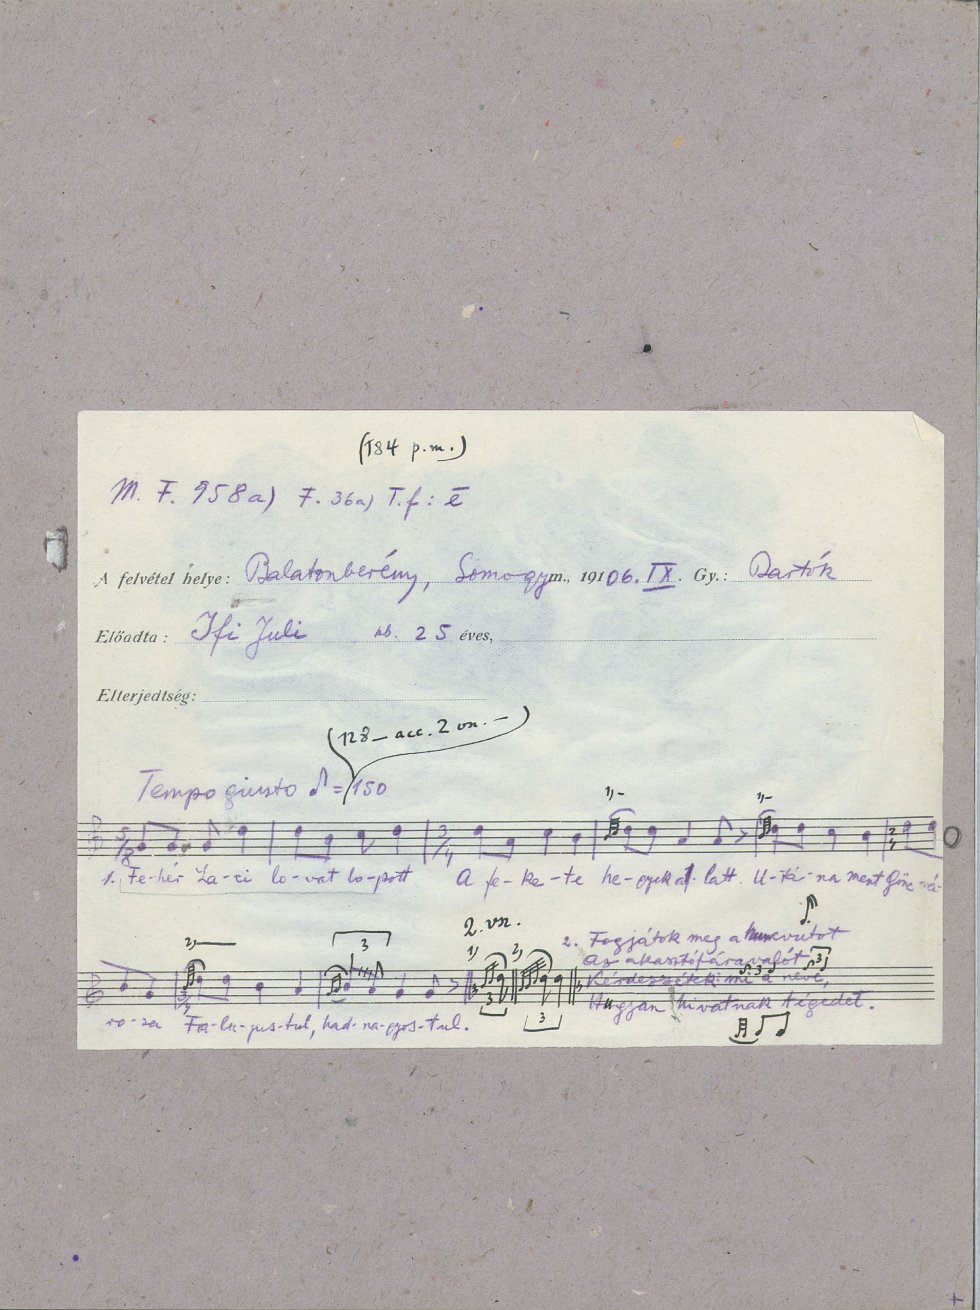 (184 p.m.)
M. F. 958a) F. 36a) T.f: ē
A felvétel helye: Balatonberény, Somogy m., 19106. IX. Gy.: Bartók
Előadta: Ifi Juli kb. 25 éves,
Elterjedtség:
(128 – acc. 2 vn. –)
Tempo giusto ♪ = 150
1)–
1)–
5/8 3/4 2/4
1. Fe-hér La-ci lo-vat lo-pott A fe-ke-te he-gyek al-latt. U-tá-na ment
2)
3
2. vn.
1) 2)
3/4
3
3
ro-za Fa-lu-jus-tul, had-na-gyos-tul.
2. Fogjátok meg a
Az akasztófáravalót,
3
3
Kérdezzétek mi a neve,
Hugyan hivatnak tégedet.